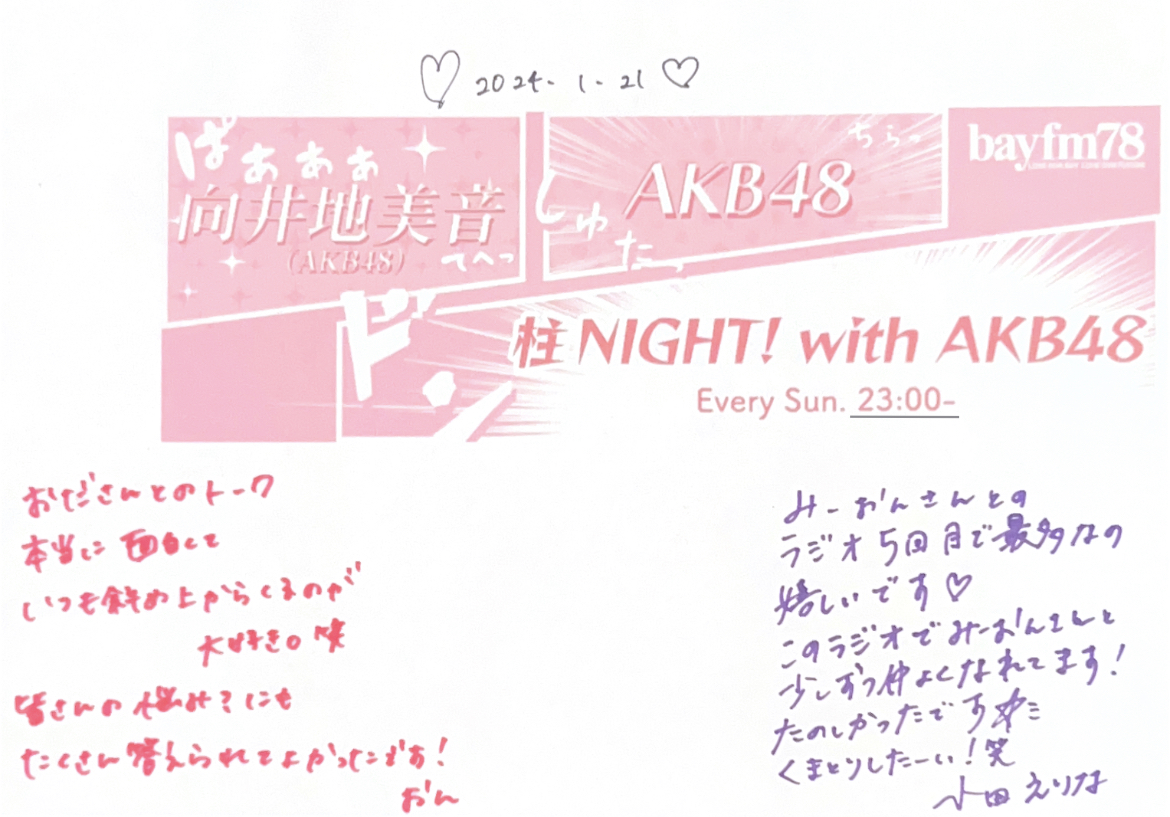 ♡ 2024.1.21 ♡
ばぁぁぁ
向井地美音
(AKB48)
てへっ
しゅたっ
ちらっ
AKB48
bayfm78
ドン
柱NIGHT! with AKB48
Every Sun. 23:00-
おださんとのトーク
本当に面白くて
いつも斜め上からくるのが
大好き。笑
皆さんの悩み?にも
たくさん答えられてよかったです!
おん
みーおんさんとの
ラジオ5回目で最多なの
嬉しいです♡
このラジオでみーおんさんと
少しずつ仲よくなれてます!
たのしかったです
くまとりしたーい!笑
小田えりな